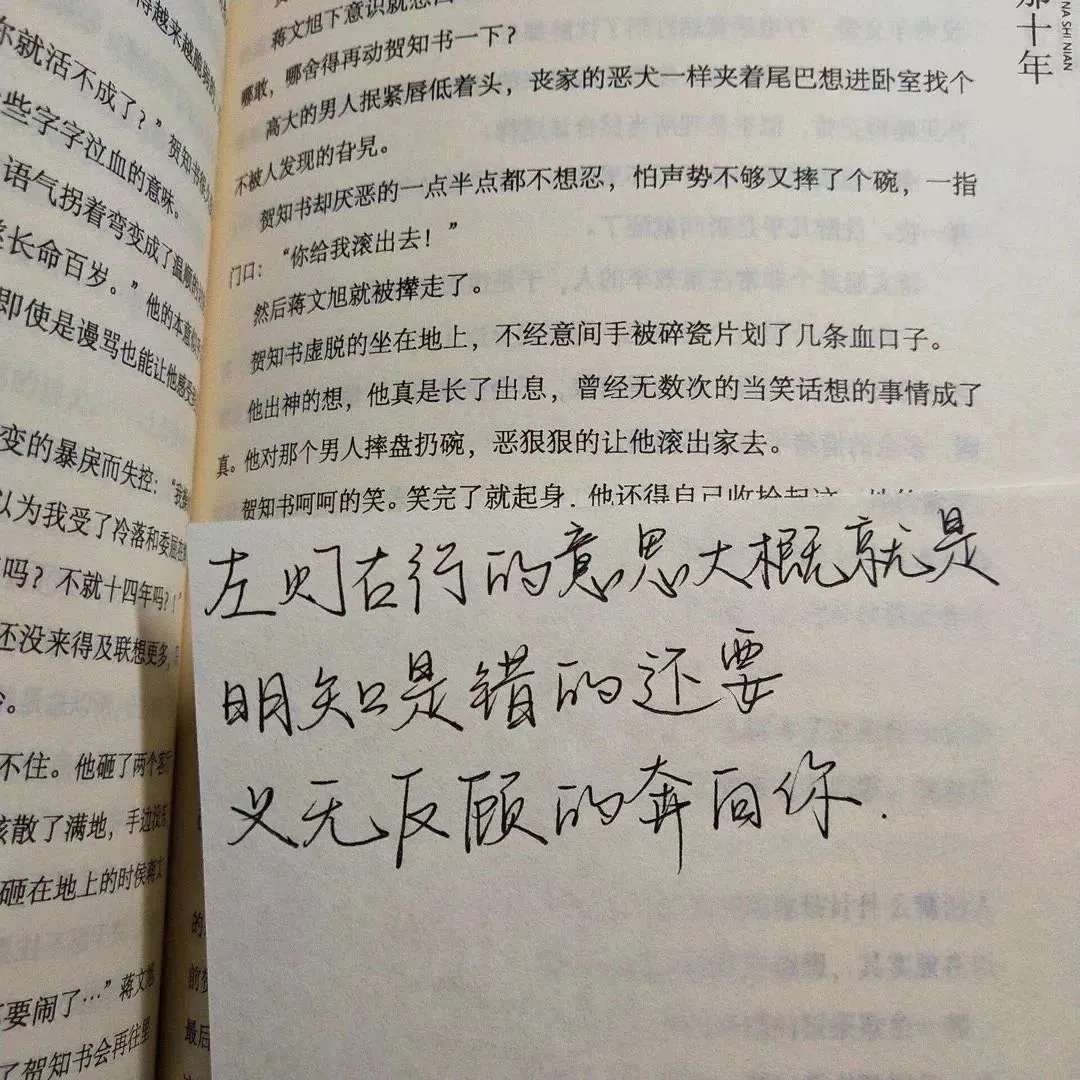 得越来越脆弱的
你就活不成了？”贺知书
些字字泣血的意味。
语气拐着弯变成了温顺的
长命百岁。”他的本意
即使是谩骂也能让他感受
变的暴戾而失控：“我
以为我受了冷落和委屈
吗？不就十四年吗？！”
还没来得及联想更多，
不住。他砸了两个客厅
散了满地，手边
砸在地上的时侯蒋文
要闹了…”蒋文旭
了贺知书会再往里
那十年
NA SHI NIAN
蒋文旭下意识就想
哪敢，哪舍得再动贺知书一下？
高大的男人抿紧唇低着头，丧家的恶犬一样夹着尾巴想进卧室找个
不被人发现的旮旯。
贺知书却厌恶的一点半点都不想忍，怕声势不够又摔了个碗，一指
门口：“你给我滚出去！”
然后蒋文旭就被撵走了。
贺知书虚脱的坐在地上，不经意间手被碎瓷片划了几条血口子。
他出神的想，他真是长了出息，曾经无数次的当笑话想的事情成了
真。他对那个男人摔盘扔碗，恶狠狠的让他滚出家去。
贺知书呵呵的笑。笑完了就起身，他还得自己收拾起这
左则右行的意思大概就是
明知是错的还要
义无反顾的奔向你.
的
前
最后